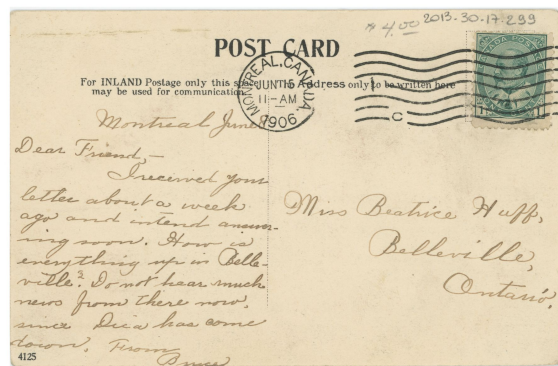 * 4.00 2013-30-17-299
POST CARD
For INLAND Postage only this
may be used for communication
Address only to be written here
MONTREAL, CANADA
JUN 15
11-AM
1906
C
CANADA POSTAGE
Montreal June
Dear Friend,—
I received your
letter about a week
ago and intend answer-
ing soon. How is
everything up in Belle-
ville? Do not hear much
news from there now,
since has come
down. From
Bruce
Miss Beatrice Huff,
Belleville,
Ontario.
4125